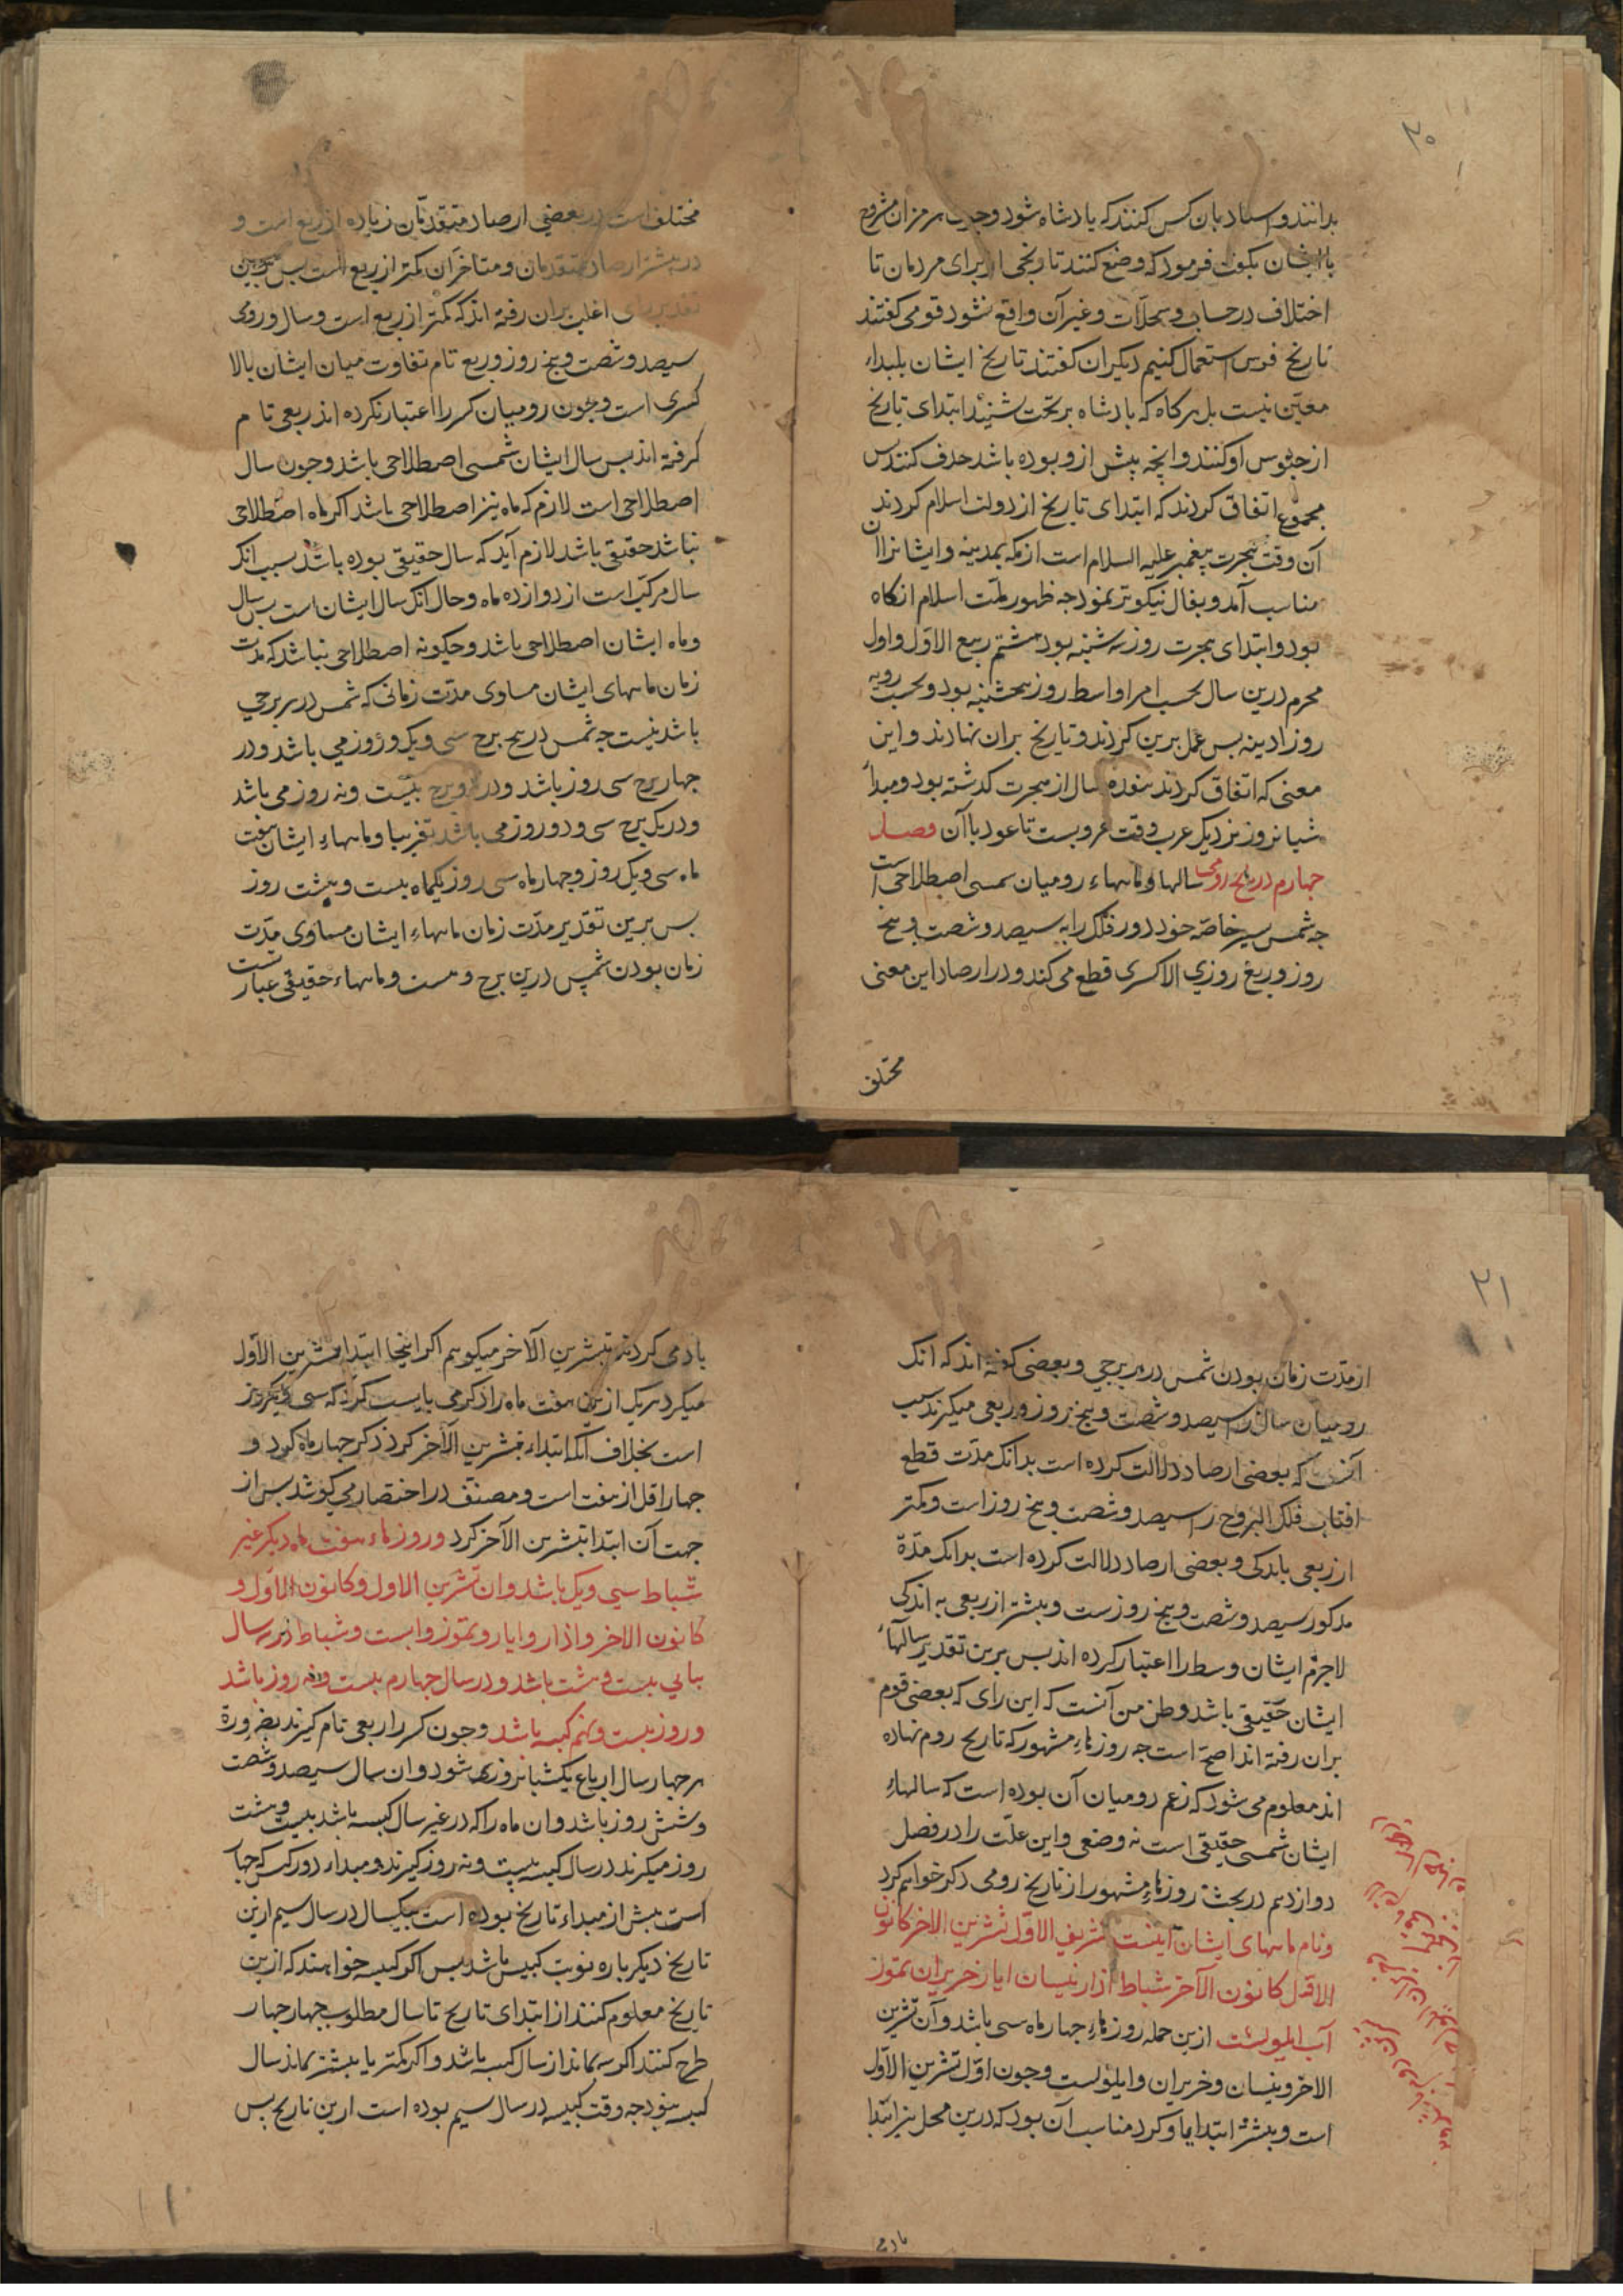 ۲۰
بدانند و اسناد بان کس کنند که پادشاه شود و چون هرمزان مشروح
با ایشان بگفت فرمود که وضع کنند تاریخی از برای مردمان تا
اختلاف در حساب و سجلات و غیر آن واقع نشود قومی گفتند
تاریخ فرس استعمال کنیم دیگران گفتند تاریخ ایشان بابتداء
معین نیست بل هرکاه که پادشاه بر تخت نشیند ابتدای تاریخ
از جلوس او کنند و انچه پیش ازو بوده باشد حذف کنند پس
مجموع اتفاق کردند که ابتدای تاریخ از دولت اسلام کردند
آن وقت هجرت پیغمبر علیه السلام است از مکه بمدینه و ایشانرا آن
مناسب آمد و بفال نیکوتر نمود چه ظهور ملت اسلام انکاه
بود و ابتدای هجرت روز سه شنبه بود هشتم ربیع الاول و اول
محرم درین سال بحسب امر اواسط روز پنجشنبه بود و بحسب رویه
روز ادینه پس عمل برین کردند و تاریخ بران نهادند و این
معنی که اتفاق کردند هفده سال از هجرت کذشته بود و مبدأ
شبانروز نزدیک عرب وقت غروبست تا عود با آن فصل
چهارم در تاریخ رومی سالها و ماهاء رومیان شمسی اصطلاحی است
چه شمس بسیر خاصه خود دور فلک را به سیصد و شصت و پنج
روز و ربع روزی الا کسری قطع می کند و در ارصاد این معنی
مختلف
مختلف است در بعضی ارصاد متقدمان زیاده از ربع است و
در بیشتر ارصاد متقدمان و متاخران کمتر از ربع است پس برین
تقدیر رای اغلب بران رفته اند که کمتر از ربع است و سال و رومی
سیصد و شصت و پنج روز و ربع تام تفاوت میان ایشان بالا
کسری است و چون رومیان کسر را اعتبار نکرده اند ربعی تام
کرفته اند پس سال ایشان شمسی اصطلاحی باشد و چون سال
اصطلاحی است لازم که ماه نیز اصطلاحی باشد اکر ماه اصطلاحی
نباشد حقیقی باشد لازم آید که سال حقیقی بوده باشد بسبب انک
سال مرکب است از دوازده ماه و حال انک سال ایشان است پس سال
و ماه ایشان اصطلاحی باشد و چکونه اصطلاحی نباشد که مدت
زمان ماههای ایشان مساوی مدت زمانی که شمس در هر برجی
باشد نیست چه شمس در پنج برج سی و یک روز می باشد و در
چهار برج سی روز باشد و در دو برج بیست و نه روز می باشد
و در یک برج سی و دو روز می باشد تقریبا و ماهاء ایشان هفت
ماه سی و یک روز و چهار ماه سی روز یکماه بیست و هشت روز
پس برین تقدیر مدت زمان ماهاء ایشان مساوی مدت
زمان بودن شمس درین برج و نیست و ماهاء حقیقی عبارتست
۲۱
از مدت زمان بودن شمس در هر برجی و بعضی کفته اند که انک
رومیان سال را سیصد و شصت و پنج روز و ربعی میکیرند بسبب
آنست که بعضی ارصاد دلالت کرده است بدانک مدت قطع
افتاب فلک البروج را سیصد و شصت و پنج روز است و کمتر
از ربعی باندکی و بعضی ارصاد دلالت کرده است بدانک مدة
مذکور سیصد و شصت و پنج روزست و بیشتر از ربعی به اندکی
لاجرم ایشان وسط را اعتبار کرده اند پس برین تقدیر سالهاء
ایشان حقیقی باشد و ظن من آنست که این رای که بعضی قوم
بران رفته اند اصح است چه روزهاء مشهور که تاریخ روم نهاده
اند معلوم می شود که زعم رومیان آن بوده است که سالهاء
ایشان شمسی حقیقی است نه وضعی و این علت را در فصل
دوازدهم در بحث روزهاء مشهور از تاریخ رومی ذکر خواهم کرد
و نام ماههای ایشان اینست تشرین الاول تشرین الاخر کانون
الاول کانون الآخر شباط اذار نیسان ایار خزیران تموز
آب ایلولست ازین جمله روزهاء چهار ماه سی باشد و آن تشرین
الاخر و نیسان و خزیران و ایلولست و چون اول تشرین الاول
است و بیشتر ابتدا باو کرد مناسب آن بود که درین محل نیز ابتدا
یاد می
یاد می کردند بتشرین الآخر میکوییم اکر اینجا ابتدا بتشرین الاول
میکرد هر یک ازین هفت ماه را ذکر می بایست کرد که سی و یکروز
است بخلاف آنکه ابتداء بتشرین الآخر کرد ذکر چهار ماه کرد و
چهار اقل از هفت است و مصنف در اختصار می کوشد پس از
جهت آن ابتدا بتشرین الآخر کرد و روزهاء هفت ماه دیکر غیر
شباط سی و یک باشد و ان تشرین الاول و کانون الاول و
کانون الاخر و اذار و ایار و تموز و ابست و شباط در سه سال
بیاپی بیست و هشت باشد و در سال چهارم بیست و نه روز باشد
و روز بیست و نهم کبیسه باشد و چون کسر را ربعی تام کیرند بضرورة
هر چهار سال ارباع یکشبانروزی شود و ان سال سیصد و شصت
و شش روز باشد و ان ماه را که در غیر سال کبیسه باشد بیست و هشت
روز میکیرند در سال کبیسه بیست و نه روز کیرند و مبداء دور کبس که چهار
است پیش از مبداء تاریخ بوده است بیکسال در سال سیم ازین
تاریخ دیکر باره نوبت کبیس باشد پس اکر کبیسه خواهند که ازین
تاریخ معلوم کنند از ابتدای تاریخ تا سال مطلوب چهار چهار
طرح کنند اکر سه ماند از سال کبیسه باشد و اکر کمتر یا بیشتر ماند سال
کبیسه نبود چه وقت کبیسه در سال سیم بوده است ازین تاریخ پس